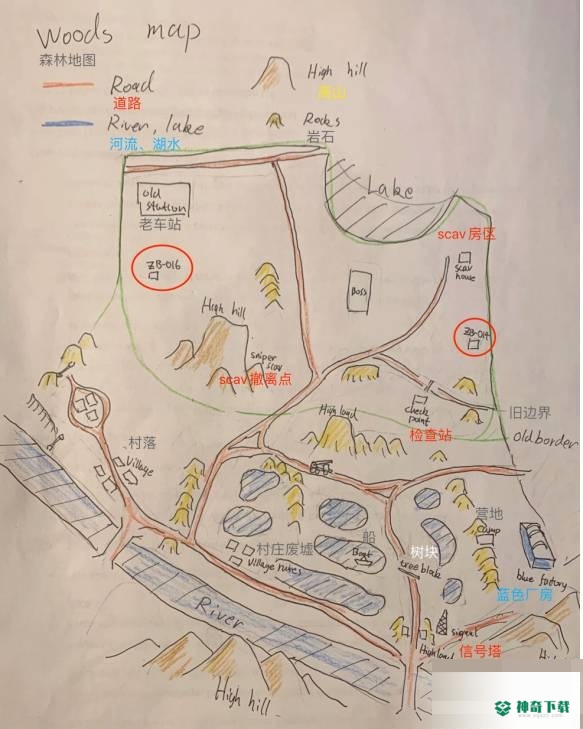 Woods map
森林地图
Road
道路
River, lake
河流、湖水
High hill
高山
Rocks
岩石
old station
老车站
Lake
ZB-016
scav房区
scav house
Boss
ZB-014
High hill
sniper scav
scav撤离点
check point
检查站
旧边界
old border
High land
村落
Village
营地
camp
村庄废墟
village ruins
船
Boat
树块
tree block
blue factory
蓝色厂房
River
signal
信号塔
High land
High hill
神奇下载